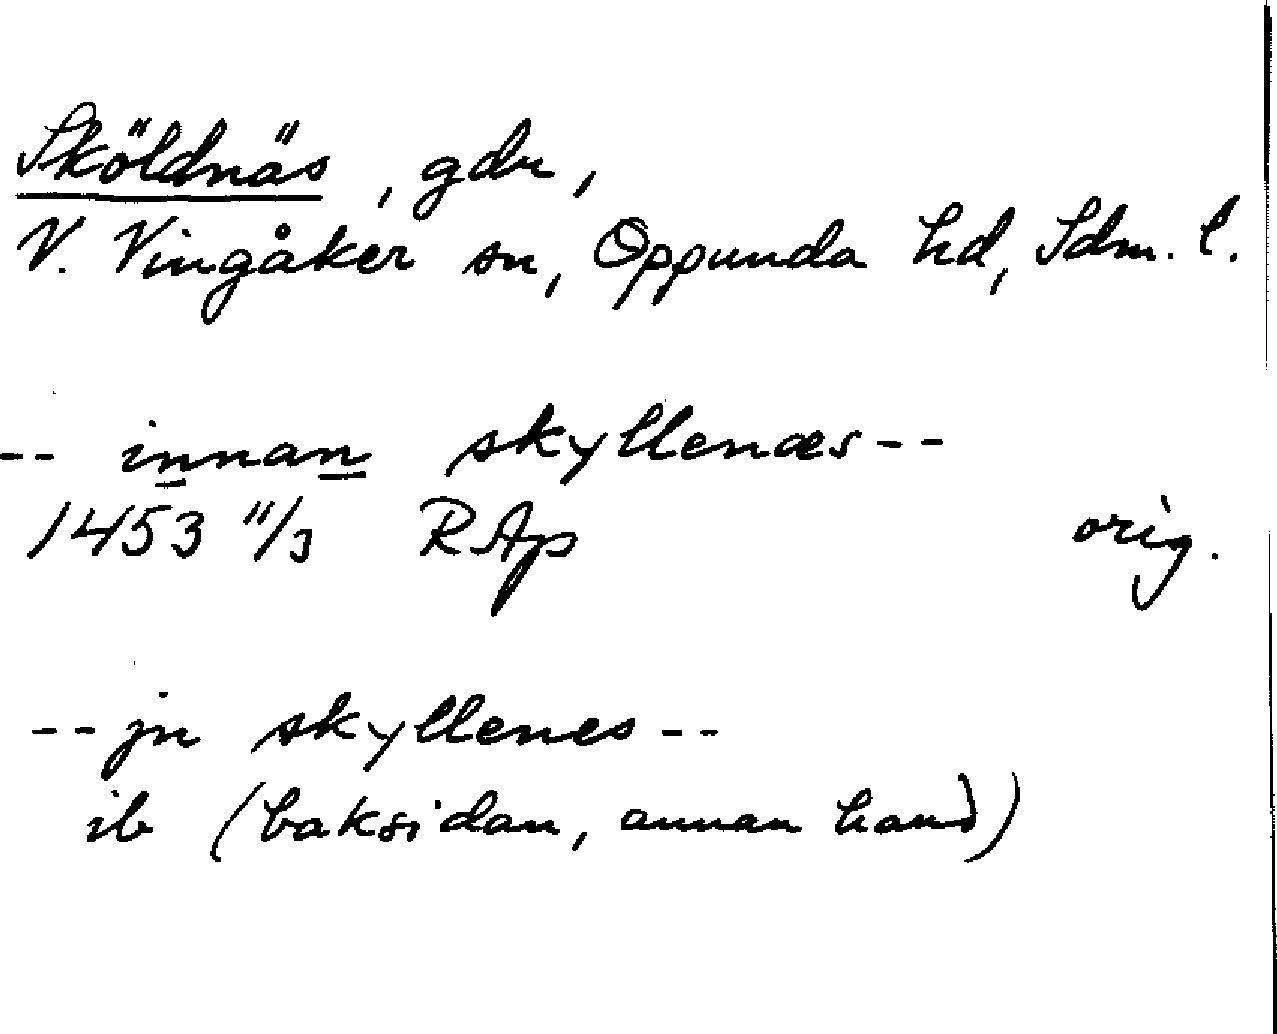 Sköldnäs, gdr,
V. Vingåker sn, Oppunda hd, Sdm. l.
-- innan skyllenæs --
1453 11/3 RAp orig.
-- jn skyllenes --
ib (baksidan, annan hand)